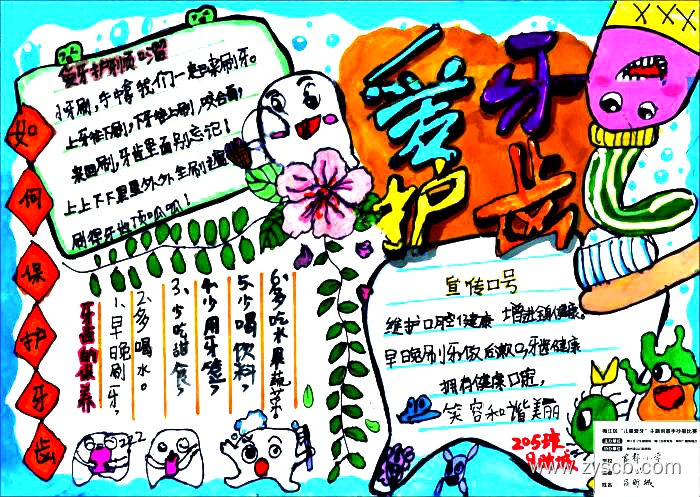 爱护牙齿
爱牙护牙顺口溜
小牙刷,手中拿,我们一起来刷牙。
上牙往下刷,下牙往上刷,咬合面,
来回刷,牙齿里面别忘记!
上上下下里里外外全刷遍
刷得牙齿顶呱呱!
如何保护牙齿
牙齿的保养
1、早晚刷牙,
2、多喝水。
3、少吃甜食,
4、少用牙签,
5、少喝饮料,
6、多吃水果蔬菜
宣传口号
维护口腔健康 增进全身健康。
早晚刷牙饭后漱口牙齿健康
拥有健康口腔,
笑容和谐美丽
205班
www.zyscb.com